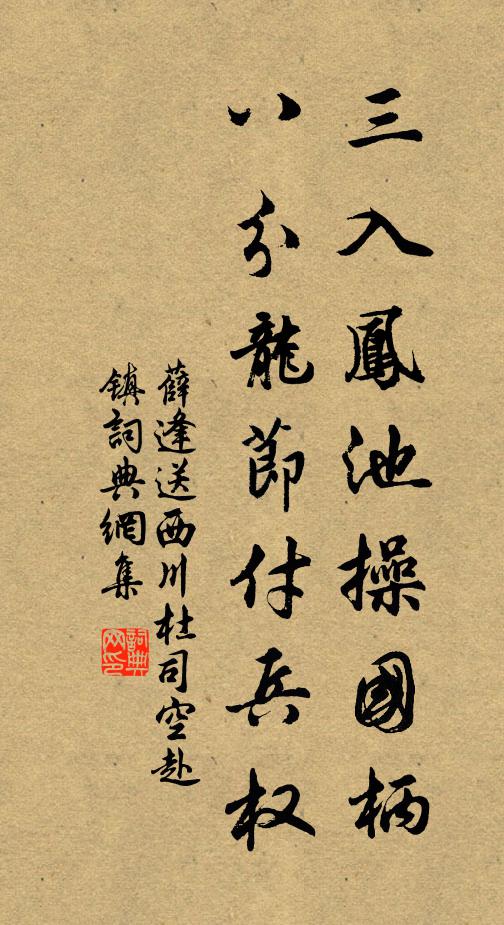 三入鳳池操國柄
八分龍節付兵权
薛逢送西川杜司空赴
镇詞典網集
詞典网印